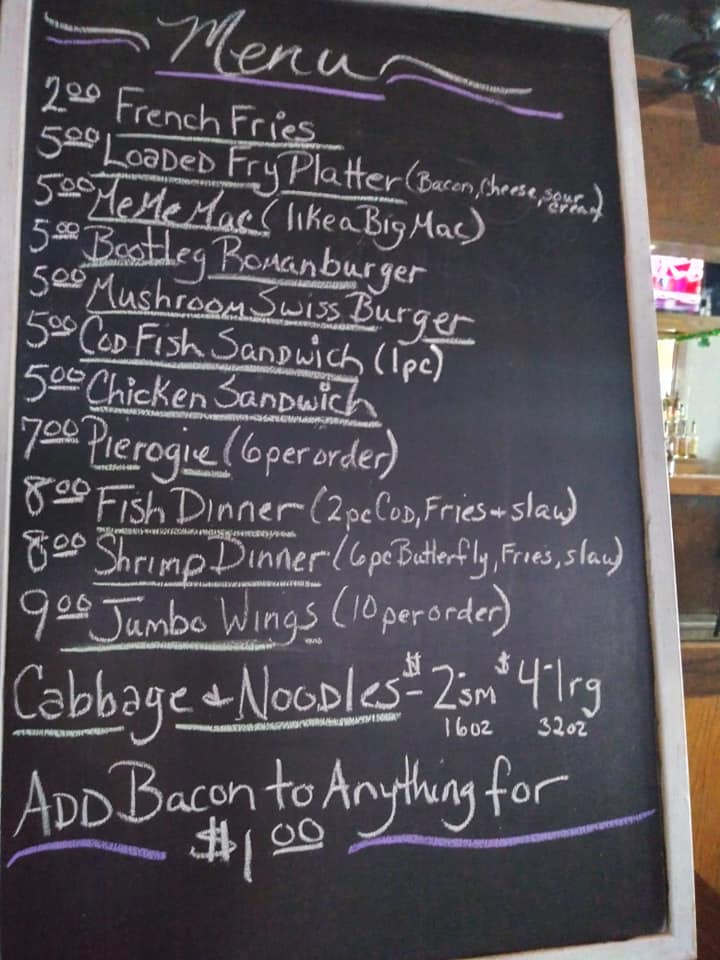 Menu
2.00 French Fries
5.00 Loaded Fry Platter (Bacon, Cheese, sour cream)
5.00 MeMe Mac (like a Big Mac)
5.00 Bootleg Romanburger
5.00 Mushroom Swiss Burger
5.00 Cod Fish Sandwich (1pc)
5.00 Chicken Sandwich
7.00 Pierogie (6 per order)
8.00 Fish Dinner (2pc Cod, Fries + slaw)
8.00 Shrimp Dinner (6pc Butterfly, Fries, slaw)
9.00 Jumbo Wings (10 per order)
Cabbage + Noodles - $2 sm $4 - lrg
16oz 32oz
Add Bacon to Anything for
$1.00